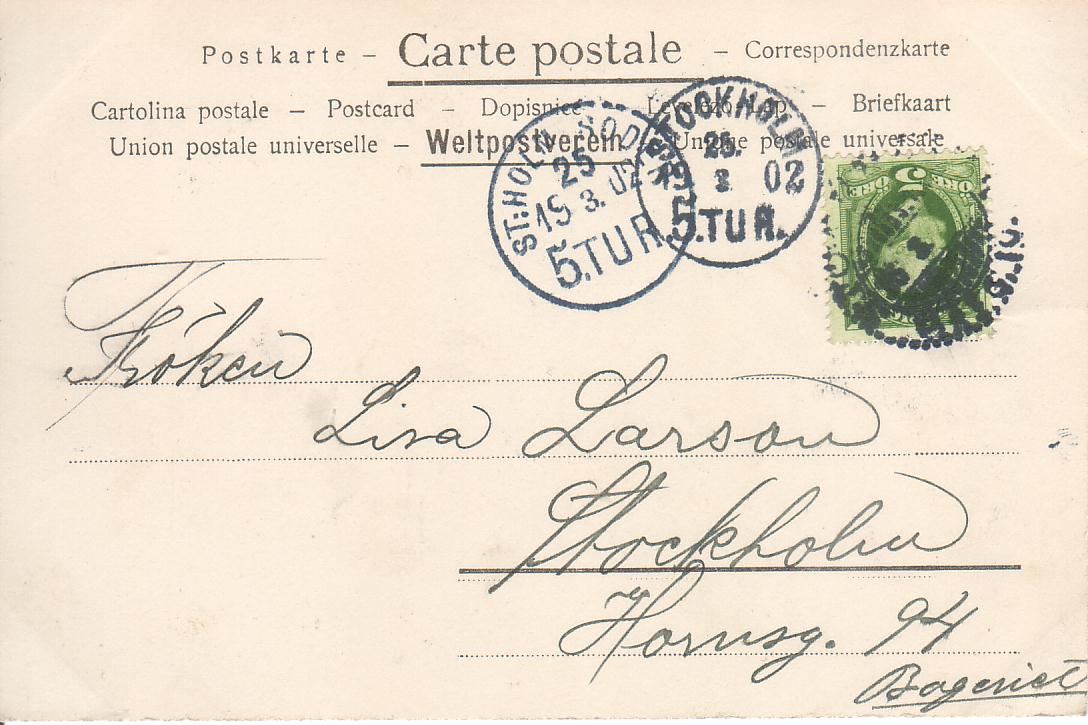 Postkarte – Carte postale – Correspondenzkarte
Cartolina postale – Postcard – Dopisnice – Levelező-Lap – Briefkaart
Union postale universelle – Weltpostverein – Unione postale universale
ST:HOLM SÖDER
25
19 3. 02
5.TUR.
STOCKHOLM
25.
3 02
5.TUR.
5
ÖRE ÖRE
Fröken
Lisa Larson
Stockholm
Hornsg. 94
Bageriet